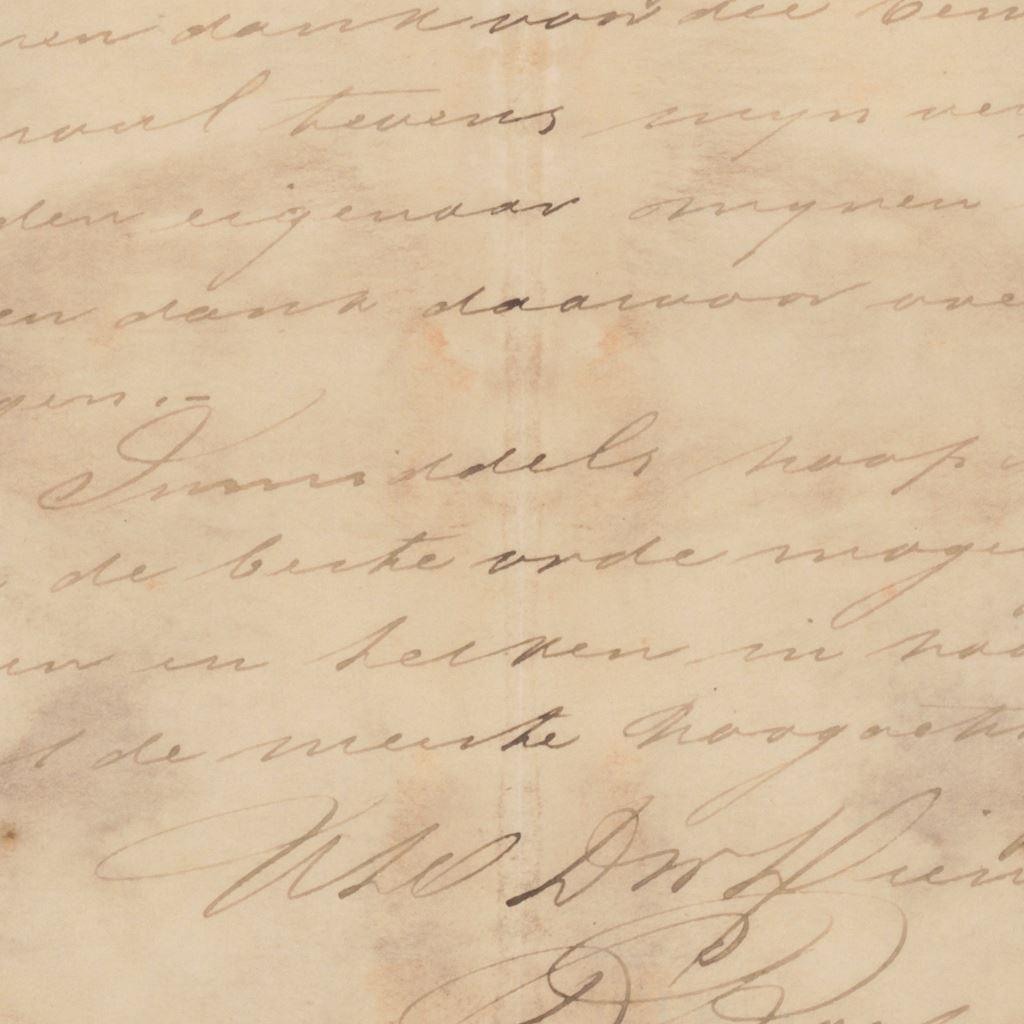 ren dank voor die
tevens mijn
den eigenaar mijnen
en dank daarvoor ove
gen.-
Inmiddels hoop
de beste orde moge
en en teeken in
de meeste hoogacht
UEd Dw Dien